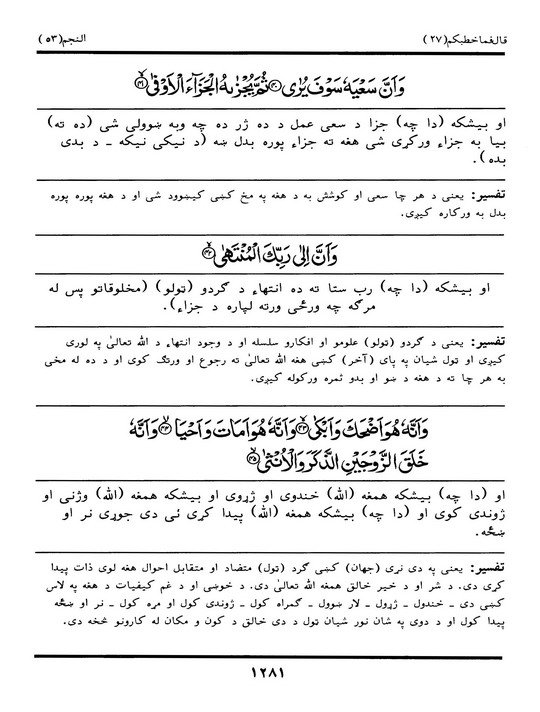 قال فماخطبكم (٢٧) النجم (٥٣)
وَاَنَّ سَعْيَهٗ سَوْفَ يُرٰى ۪ ثُمَّ يُجْزٰىهُ الْجَزَآءَ الْاَوْفٰى ۙ
او بيشكه (دا چه) جزا د سعى عمل د ده ژر ده چه وبه ښوولى شى (ده ته)
بيا به جزاء وركړى شى هغه ته جزاء پوره بدل ښه (د نيكى نيكه ـ د بدى
بده).
تفسير: يعنى د هر چا سعى او كوشش به د هغه په مخ كښى كيښوود شى او د هغه پوره پوره
بدل به وركاره كيږى.
وَاَنَّ اِلٰى رَبِّكَ الْمُنْتَهٰى ۙ
او بيشكه (دا چه) رب ستا ته ده انتهاء د ګردو (ټولو) (مخلوقاتو پس له
مرګه چه ورځى ورته لپاره د جزاء).
تفسير: يعنى د ګردو (ټولو) علومو او افكارو سلسله او د وجود انتهاء د الله تعالىٰ په لورى
كيږى او ټول شيان په پاى (آخر) كښى هغه الله تعالىٰ ته رجوع او ورتګ كوى او د ده له مخى
به هر چا ته د هغه د ښو او بدو ثمره وركوله كيږى.
وَاَنَّهٗ هُوَ اَضْحَكَ وَاَبْكٰى ۙ وَاَنَّهٗ هُوَ اَمَاتَ وَاَحْيَا ۙ وَاَنَّهٗ
خَلَقَ الزَّوْجَيْنِ الذَّكَرَ وَالْاُنْثٰى ۙ
او (دا چه) بيشكه همغه (الله) خندوى او ژړوى او بيشكه همغه (الله) وژنى او
ژوندى كوى او (دا چه) بيشكه همغه (الله) پيدا كړى ئى دى جوړى نر او
ښځه.
تفسير: يعنى په دى نړى (جهان) كښى ګرد (ټول) متضاد او متقابل احوال هغه لوى ذات پيدا
كړى دى. د شر او د خير خالق همغه الله تعالىٰ دى. د خوښى او د غم كيفيات د هغه په لاس
كښى دى ـ خندول ـ ژړول ـ لار ښوول ـ ګمراه كول ـ ژوندى كول او مړه كول ـ نر او ښځه
پيدا كول او د دوى په شان نور شيان ټول د دى خالق د كون و مكان له كارونو څخه دى.
١٢٨١